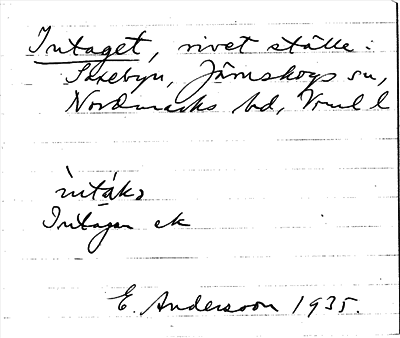 Intaget, rivet ställe:
Skrebyn, Järnskogs sn,
Nordmarks hd, Vrml l
ìntákə
Intagan ek
E. Andersson 1935.